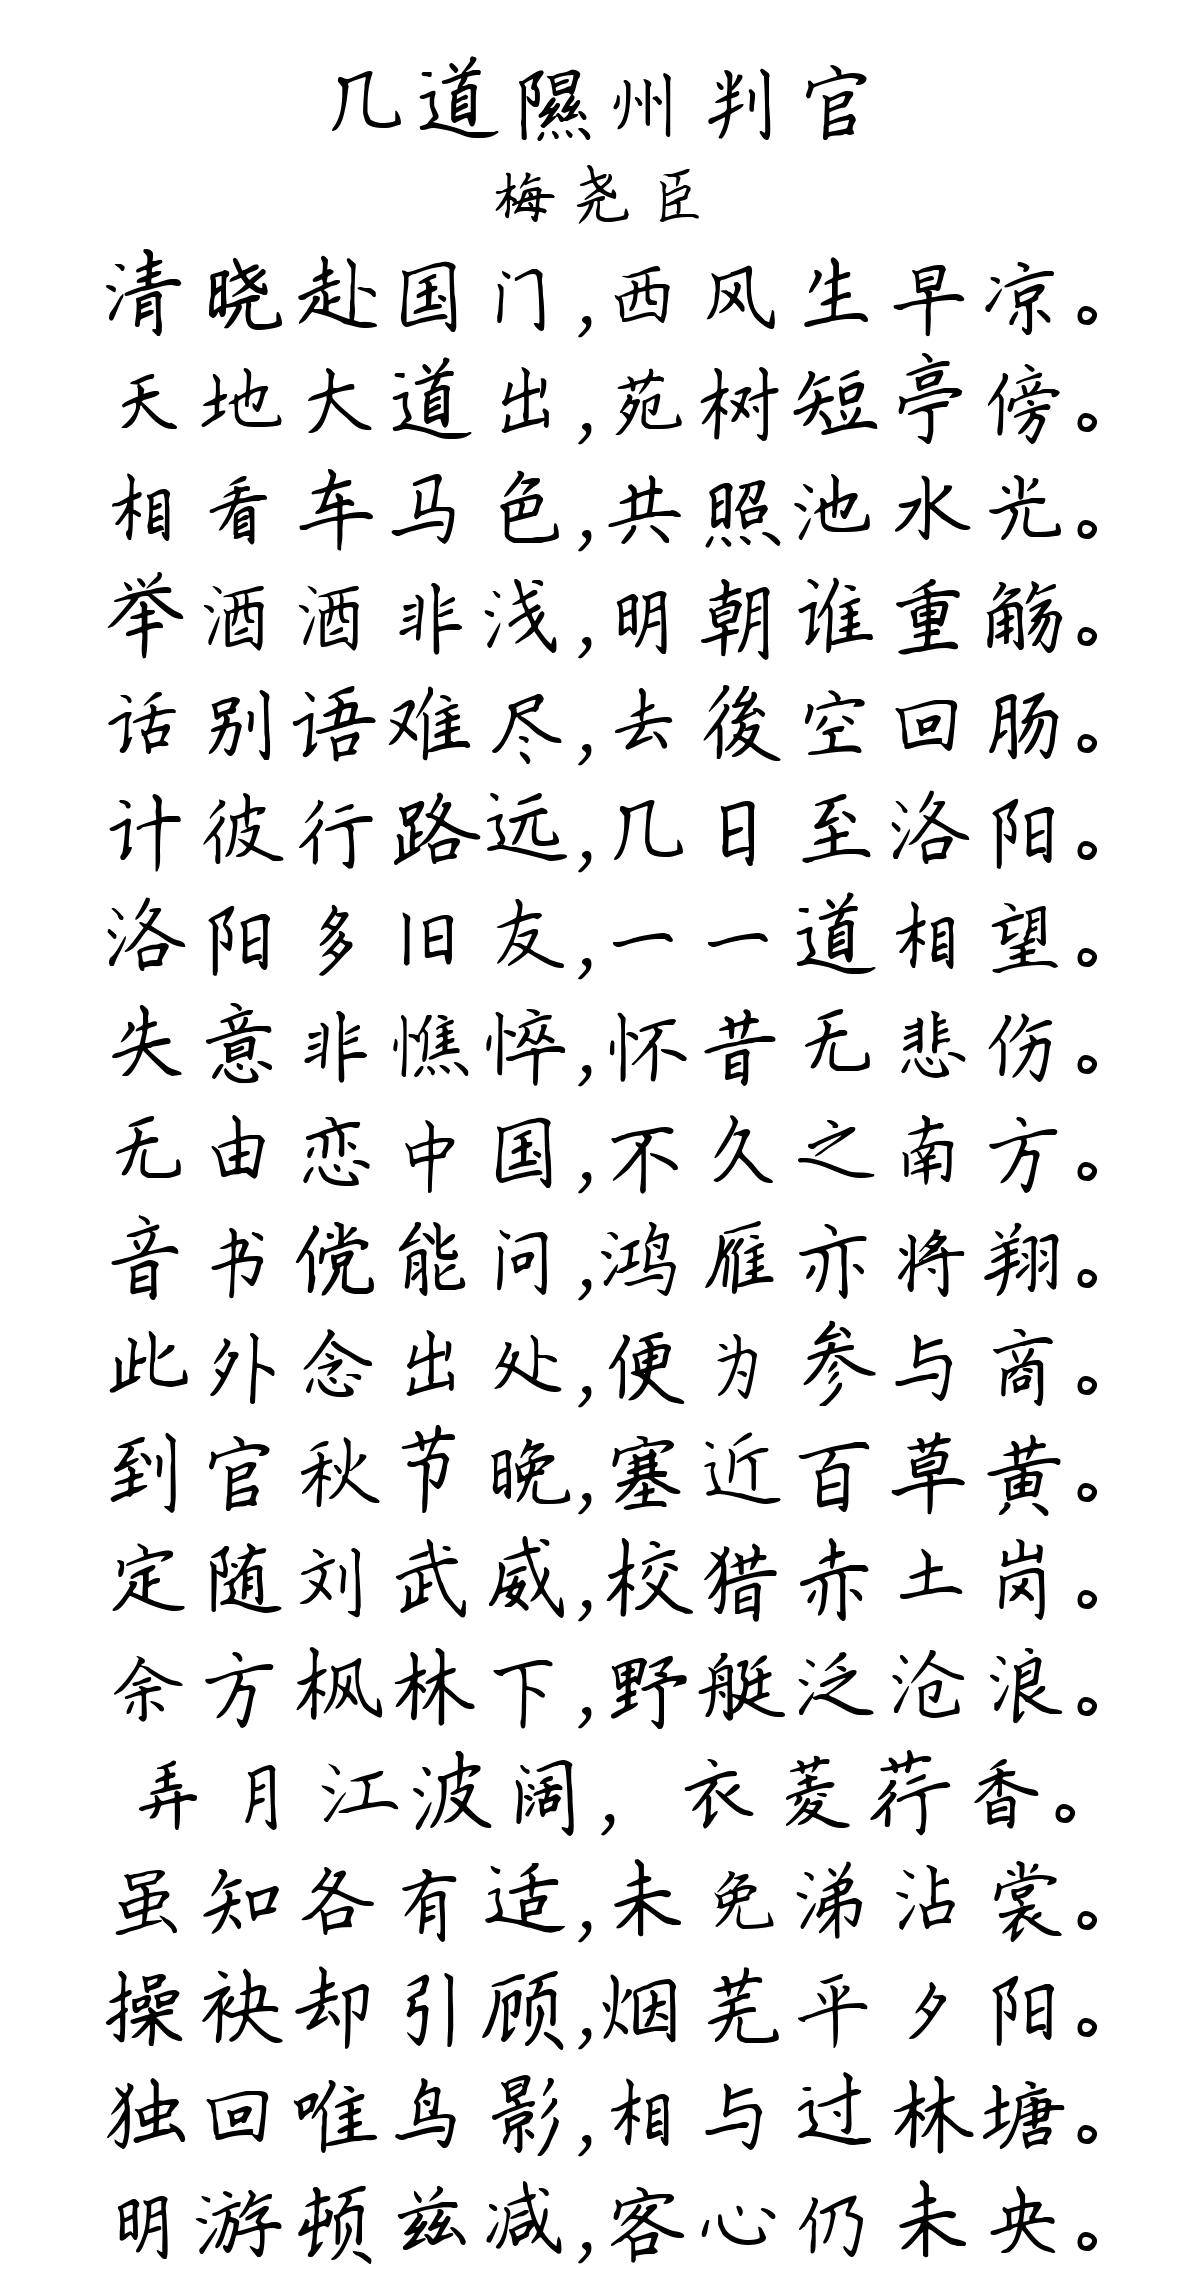 几道隰州判官
梅尧臣
清晓赴国门,西风生早凉。
天地大道出,苑树短亭傍。
相看车马色,共照池水光。
举酒酒非浅,明朝谁重觞。
话别语难尽,去後空回肠。
计彼行路远,几日至洛阳。
洛阳多旧友,一一道相望。
失意非憔悴,怀昔无悲伤。
无由恋中国,不久之南方。
音书傥能问,鸿雁亦将翔。
此外念出处,便为参与商。
到官秋节晚,塞近百草黄。
定随刘武威,校猎赤土岗。
余方枫林下,野艇泛沧浪。
弄月江波阔，衣菱荇香。
虽知各有适,未免涕沾裳。
操袂却引顾,烟芜平夕阳。
独回唯鸟影,相与过林塘。
明游顿兹减,客心仍未央。